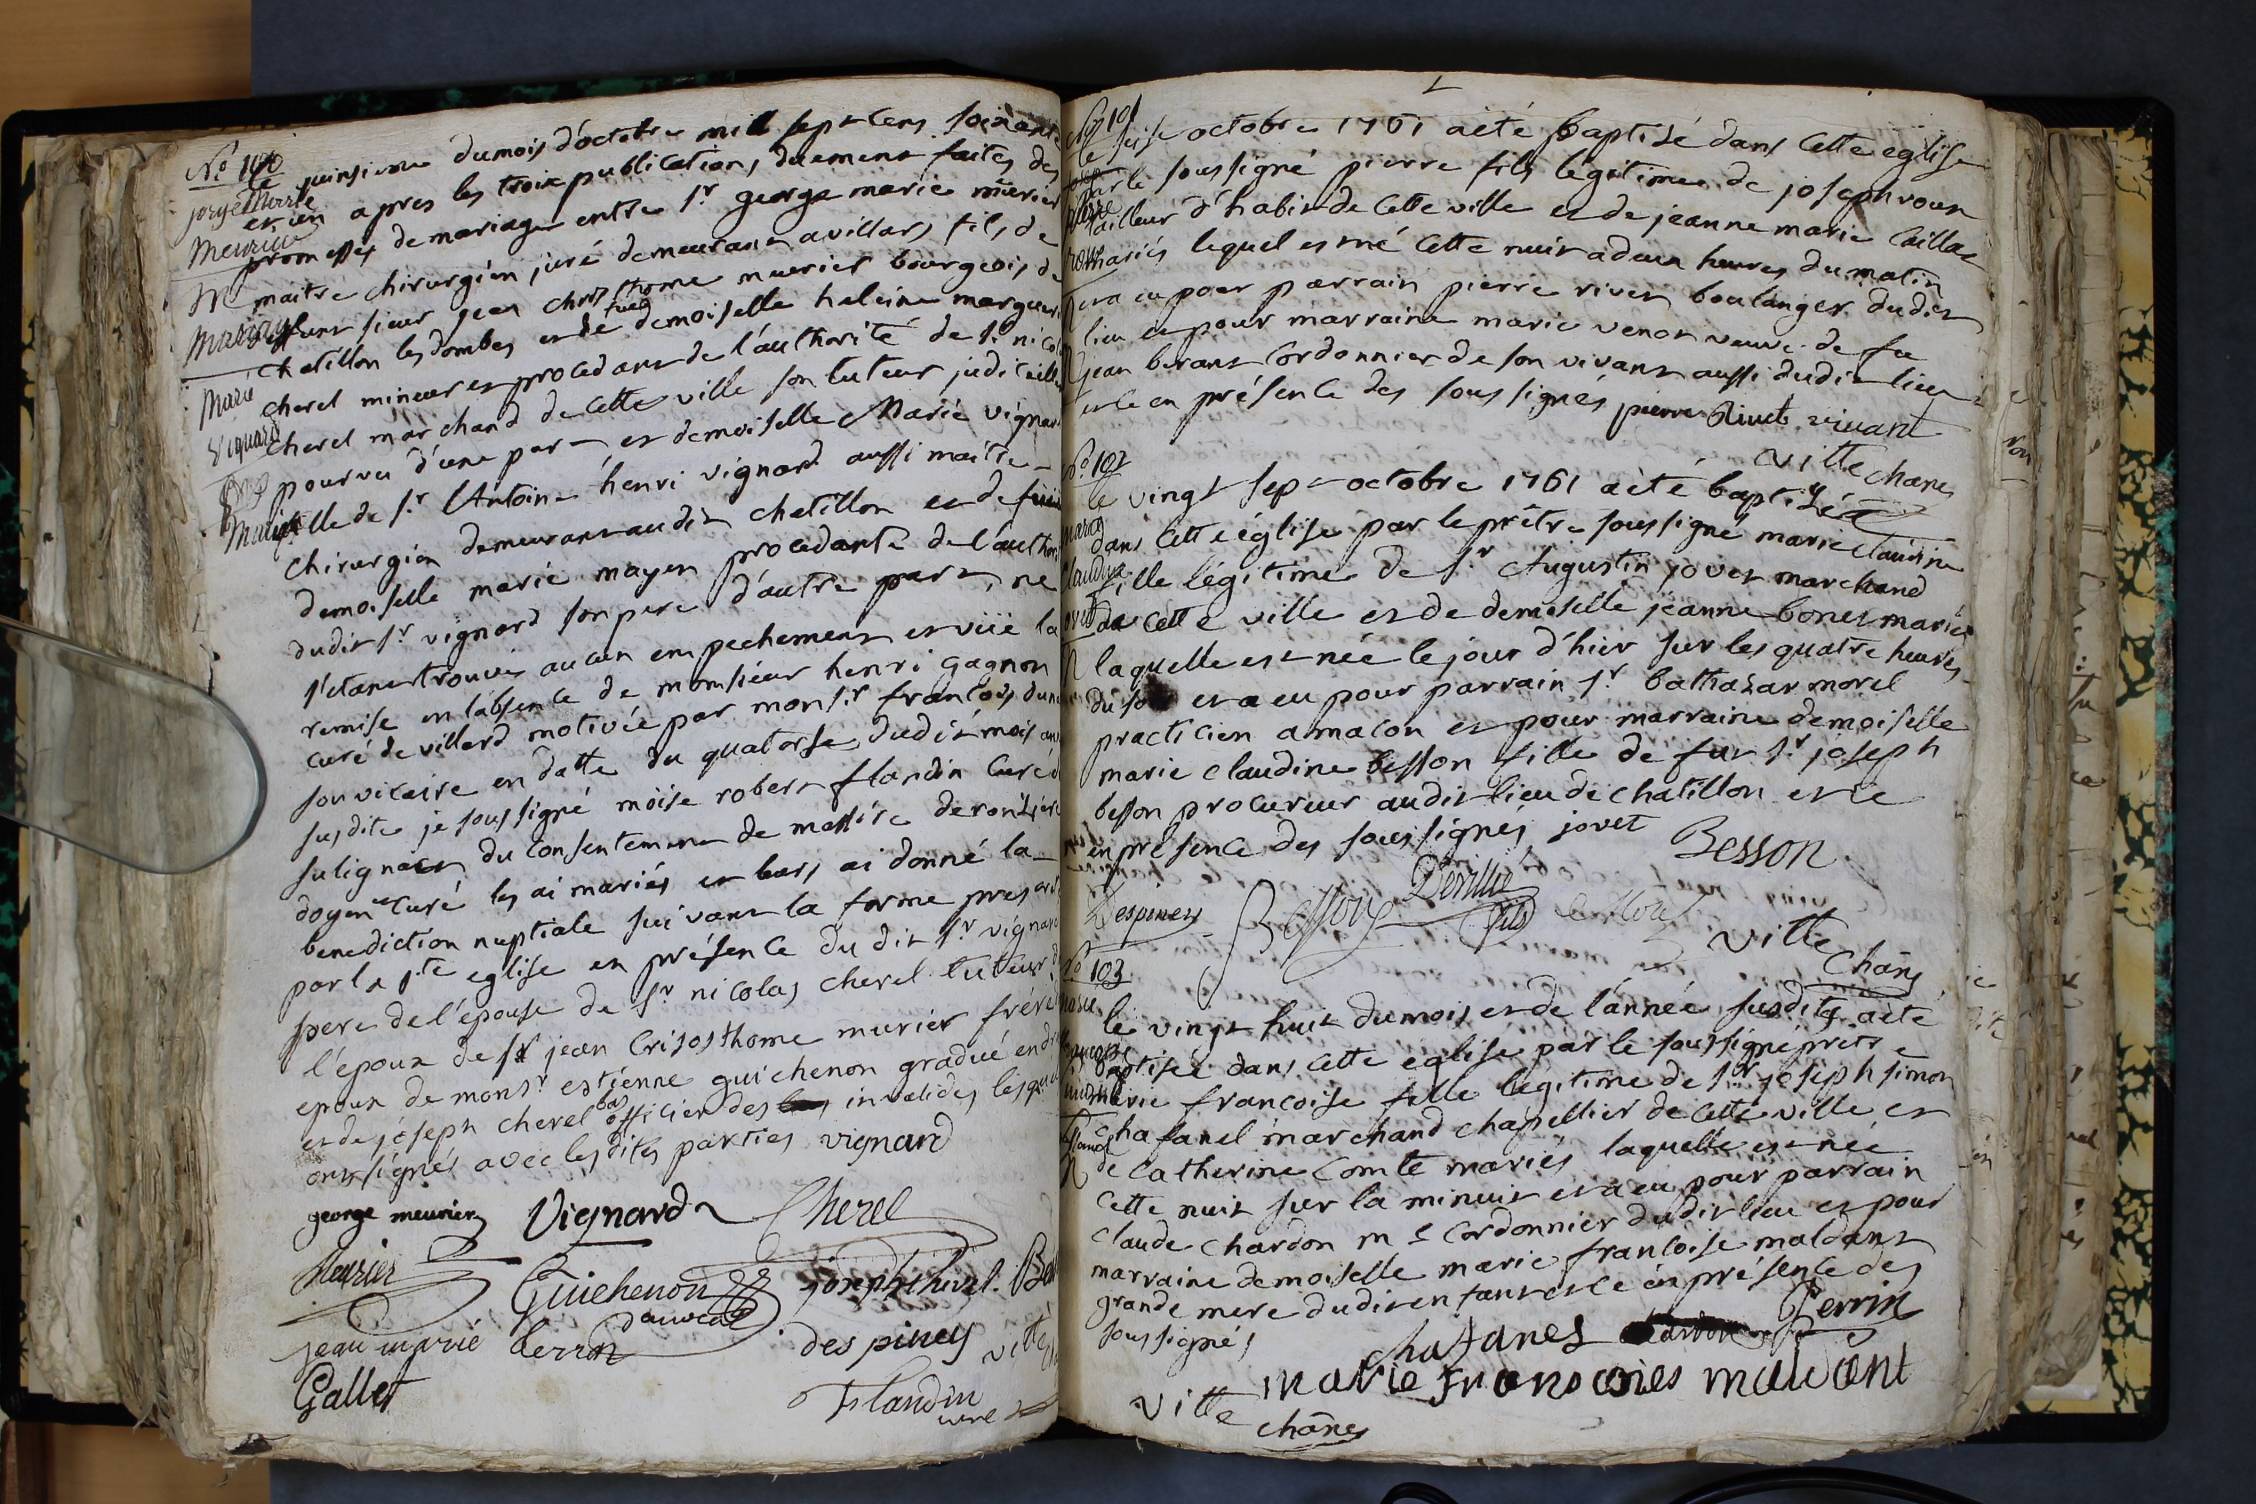 No 100
le quinsieme dumois d'octobre mill sept cens soixante
et un apres les trois publications duement faites des
promesses demariage entre Sr george marie murier
maitre chirurgien juré demeurant a villars fils de
deffunt sieur jean chrisosthome meurier bourgeois de
chatillon lesdombes et de feue demoiselle heleine marguerite
cherel mineur et procedant de l'authorité de Sr nicolas
cherel marchand de cette ville son tuteur judiciellem
pourvu d'une part et demoiselle Marie vignard
fille de Sr Antoine henri vignard aussi maitre
chirurgien demeurant audit chatillon et de feue
demoiselle marie mayen procedante de l'authorité
dudit Sr vignard son pere d'autre part, ne
s'etant trouvés aucun empechement et vüe la
remise en l'absence de monsieur henri gagnon
curé de villard motivée par monsr françois
son vicaire en datte du quatorse dudit mois
susdite je soussigné moise robert flandin curé
sulignat du consentement de messire
doyen curé les ai mariés et leurs ai donné la
benediction nuptiale suivant la forme
par la Ste eglise en présence du dit Sr vignard
pere de l'épouse de Sr nicolas cherel tuteur de
l'époux de Sr jean Crisosthome murier frére
epoux de monsr estienne guichenon gradué en
et de joseph cherel bas officier des invalides lesquels
ont signés avec lesdites parties vignard
george meurier Vignard Cherel
Meurier Guichenon joseph cherel
d'avocat
jean marie perrin des piney ville
Gallet Flandin
curé
jorge Pierre
Meurier
Marie
Vignard
No 101
le seise octobre 1761 aété baptisé dans cette eglise
par le soussigné pierre fils légitime de joseph roux
tailleur d'habit de cette ville et de jeanne marie caillat
mariés lequel est né cette nuit adeux heures dumatin
et a eu pour parrain pierre rivet boulanger dudit
lieu et pour marraine marie venot veuve de feu
jean berant cordonnier de son vivant aussi dudit lieu
et ce en présence des soussignés pierre Rivet vivant
ville chanes
No 102
le vingt sept octobre 1761 aété baptisée
dans cette église par le prêtre soussigné marie claudine
fille légitime de Sr Augustin jovet marchand
de cette ville et de demoiselle jeanne bonet mariés
laquelle est née le jour d'hier sur les quatre heures
du soir et a eu pour parrain Sr bathazar morel
practicien a macon et pour marraine demoiselle
marie claudine besson fille de feu Sr joseph
besson procureur audit lieu de chatillon et ce
en présence des soussignés jovet Besson
Despiney Besson Deville
fils
ville
chanes
No 103
le vingt huit dumois et de l'année susdits aété
baptisée dans cette eglise par le soussigné prêtre
marie francoise fille legitime de Sr joseph simon
chafanel marchand chapellier de cette ville et
de Catherine Comte mariés laquelle est née
cette nuit sur la minuit et a eu pour parrain
claude chardon me cordonnier dudit lieu et pour
marraine demoiselle marie francoise maldant
grande mere dudit enfant et ce en présence des
soussignés chafanel Perrin
marie franscoies maldant
ville
chanes